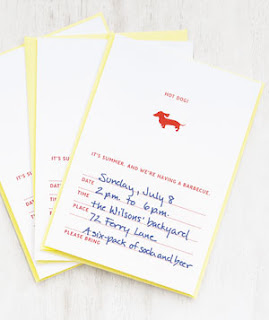 HOT DOG!
IT'S SUMMER, AND WE'RE HAVING A BARBECUE.
DATE Sunday, July 8
TIME 2 p.m. to 6 p.m.
PLACE the Wilsons' backyard
72 Ferry Lane
PLEASE BRING A six-pack of soda and beer
IT'S S
DATE
TIME
PLACE
PLEASE